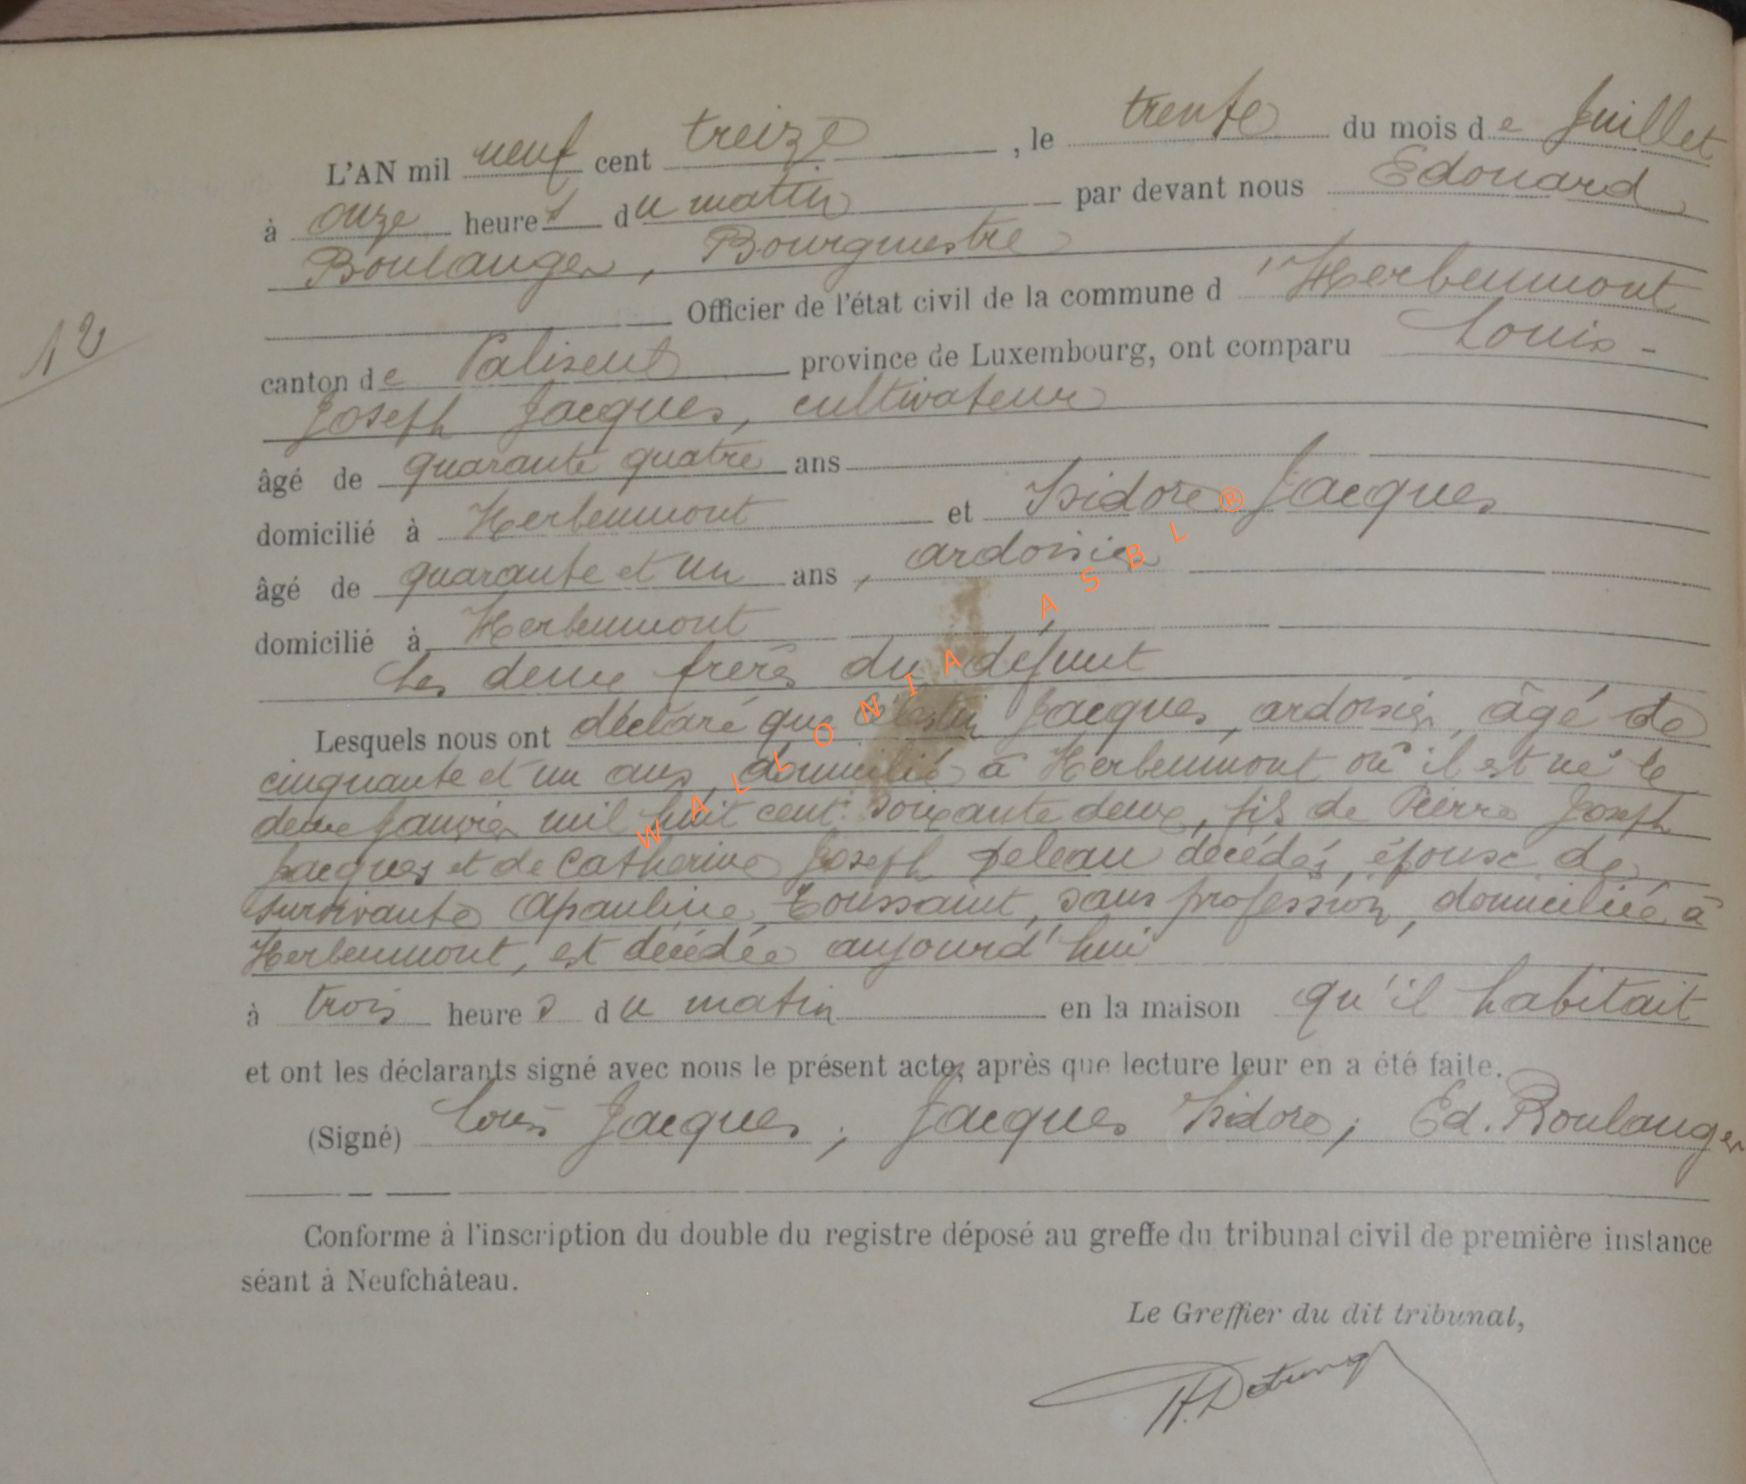 L'AN mil neuf cent treize, le trente du mois de Juillet
à onze heures du matin par devant nous Edouard
Boulanger, Bourgmestre
Officier de l'état civil de la commune d'Herbeumont
12
canton de Paliseul province de Luxembourg, ont comparu Louis-
Joseph Jacques, cultivateur
âgé de quarante quatre ans
domicilié à Herbeumont et Isidore Jacques
âgé de quarante et un ans, ardoisier
domicilié à Herbeumont,
les deux frères du défunt
Lesquels nous ont déclaré que Célestin Jacques, ardoisier, âgé de
cinquante et un ans, domicilié à Herbeumont où il est né le
deux Janvier mil huit cent soixante deux, fils de Pierre Joseph
Jacques et de Catherine Joseph décédés, époux de
survivante Apauline Toussaint, sans profession, domiciliée à
Herbeumont, est décédée aujourd'hui
à trois heures du matin en la maison qu'il habitait
et ont les déclarants signé avec nous le présent acte, après que lecture leur en a été faite.
(Signé) Louis Jacques; Jacques Isidore; Ed. Boulanger
Conforme à l'inscription du double du registre déposé au greffe du tribunal civil de première instance
séant à Neufchâteau.
Le Greffier du dit tribunal,
WALLONIA ASBL ®